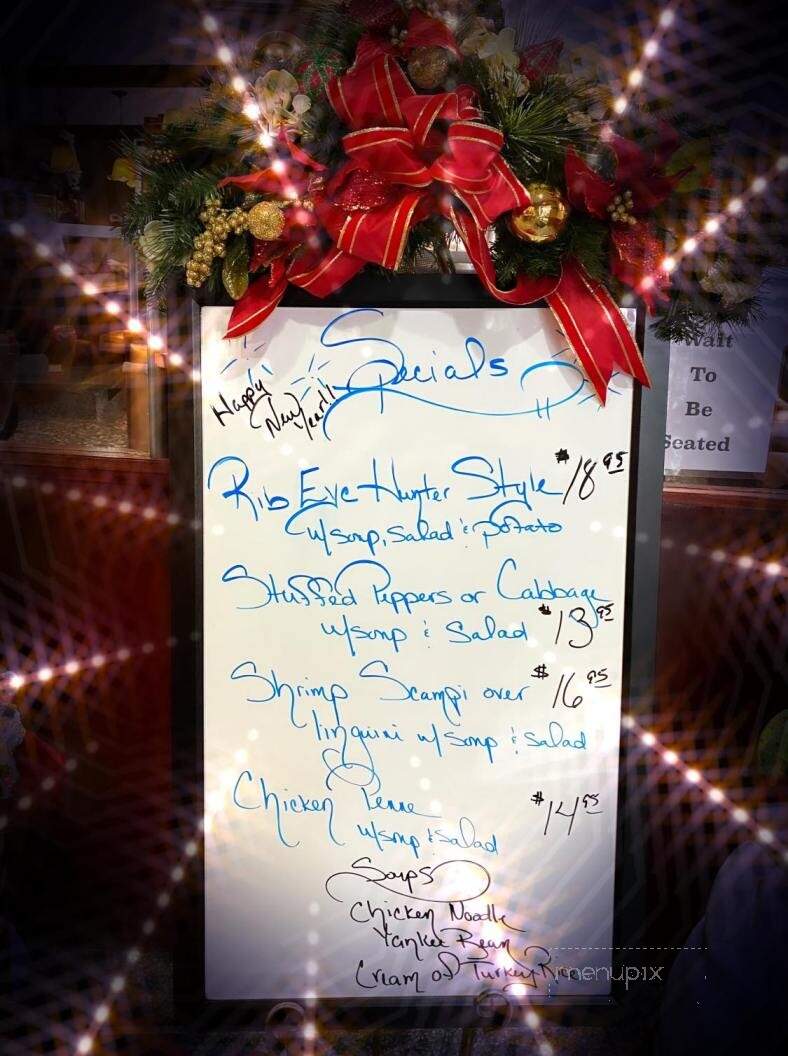 Specials
Happy
New
Year!!
Wait
To
Be
Seated
Rib Eye Hunter Style $18.95
w/soup, salad & potato
Stuffed Peppers or Cabbage
w/soup & Salad $13.95
Shrimp Scampi over $16.95
linguini w/soup & salad
Chicken Penne $14.95
w/soup & salad
Soups
Chicken Noodle
Yankee Bean
Cream of Turkey Rice
menupix